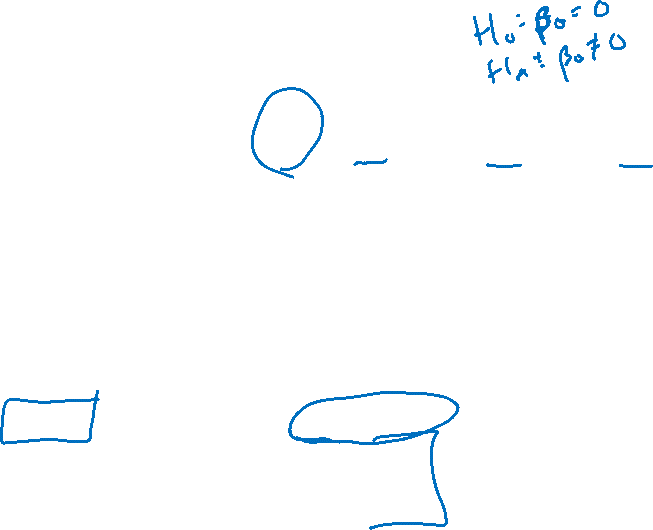 H₀: β₀ = 0
Hₐ: β₀ ≠ 0